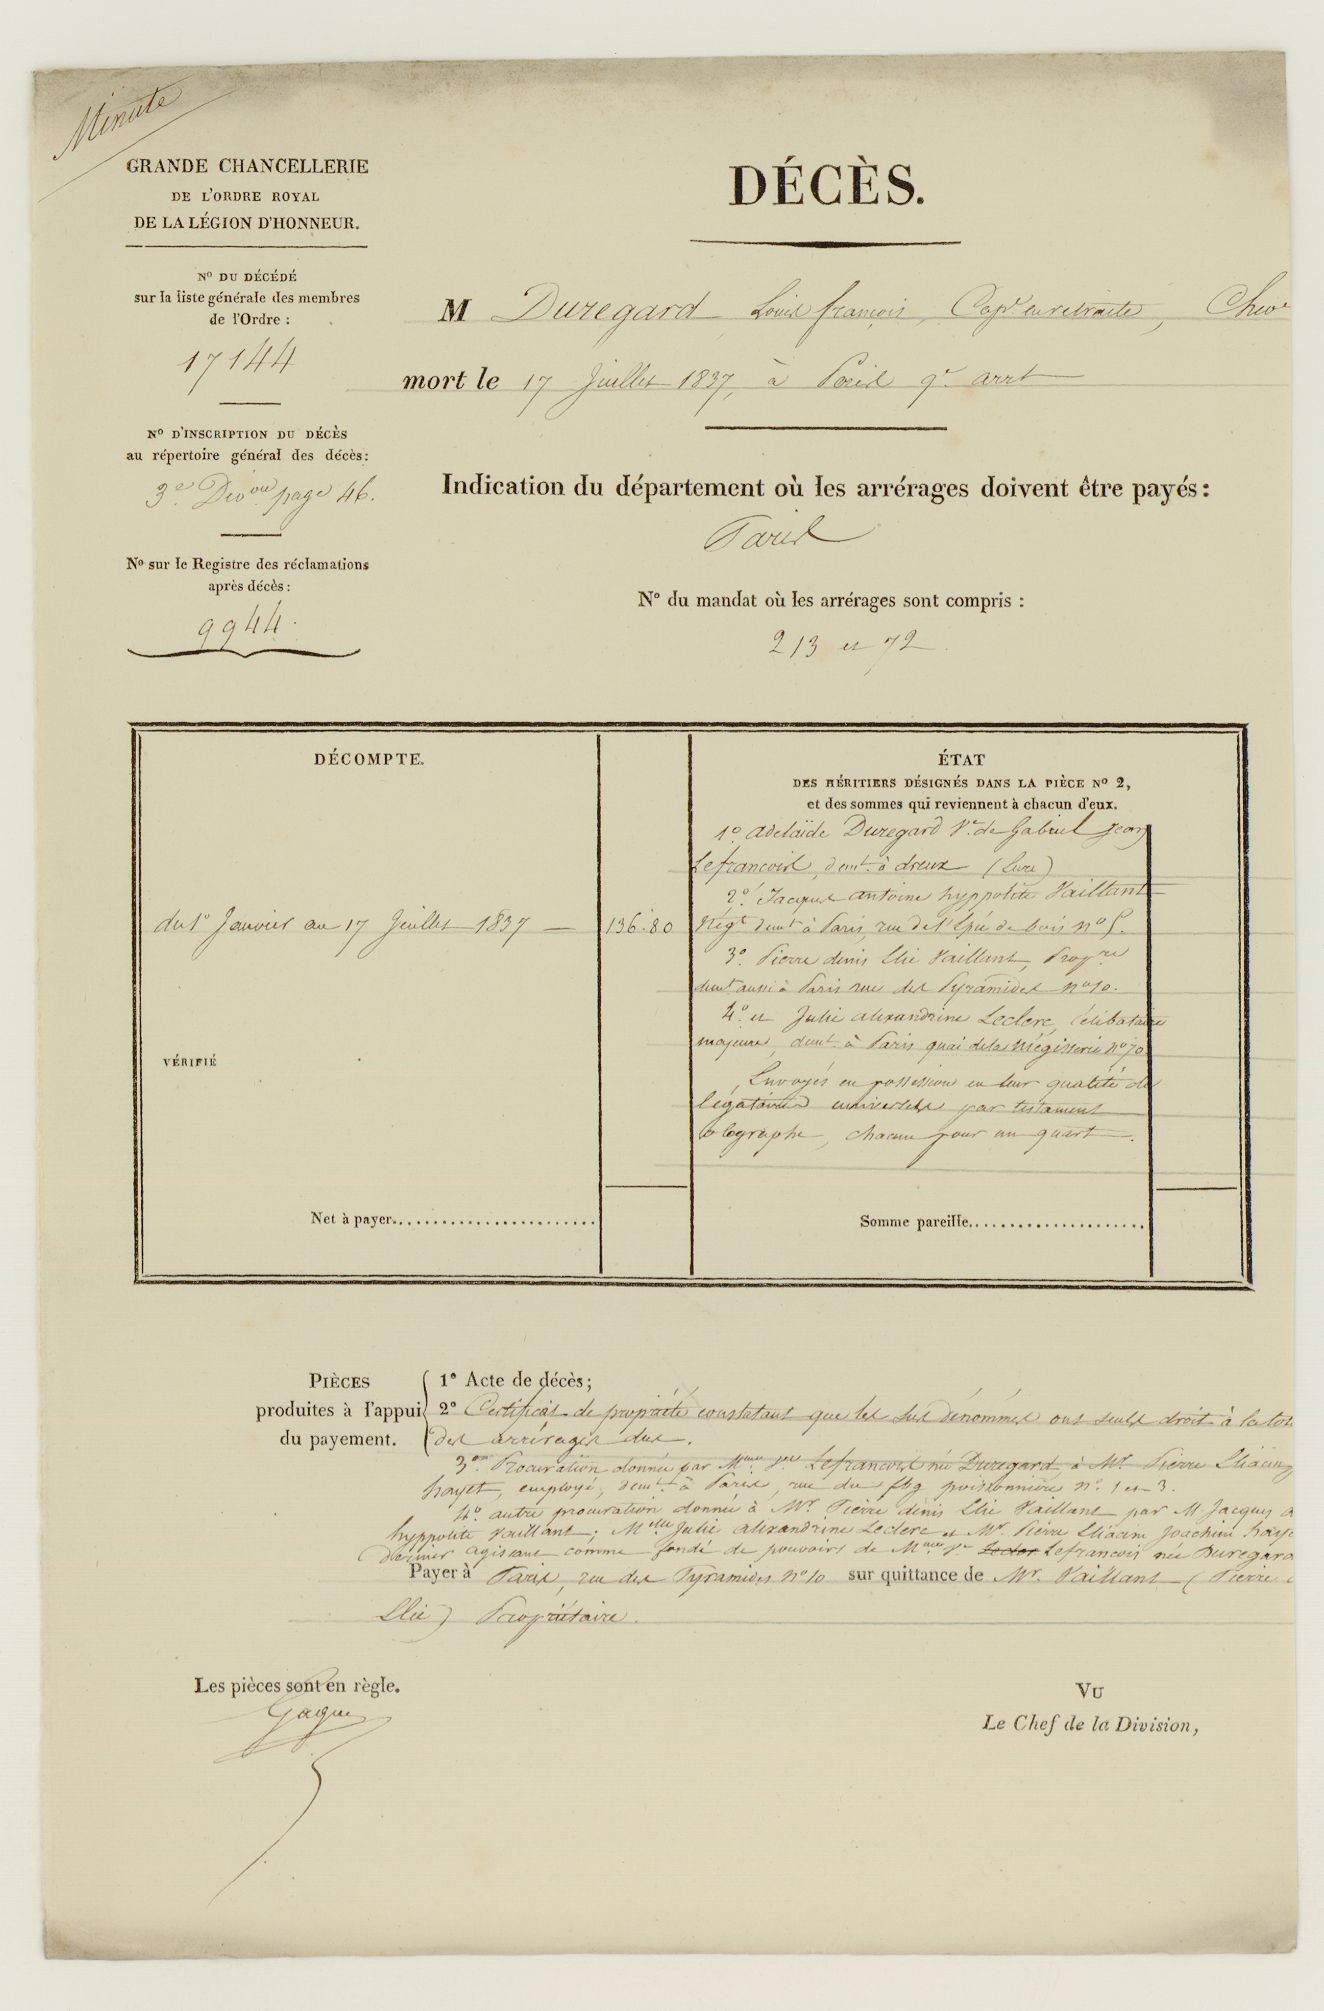 Minute
GRANDE CHANCELLERIE
DE L'ORDRE ROYAL
DE LA LÉGION D'HONNEUR.
Nº DU DÉCÉDÉ
sur la liste générale des membres
de l'Ordre :
17144
Nº D'INSCRIPTION DU DÉCÈS
au répertoire général des décès:
3e Don page 46.
Nº sur le Registre des réclamations
après décès :
9944.
DÉCÈS.
M Duregard Louis françois, Cape en retraite, Chev
mort le 17 Juillet 1837, à Paris 9e arrt
Indication du département où les arrérages doivent être payés :
Paris
Nº du mandat où les arrérages sont compris :
213 et 72.
DÉCOMPTE.
du 1er Janvier au 17 Juillet 1837 — 136.80
VÉRIFIÉ
Net à payer
ÉTAT
DES HÉRITIERS DÉSIGNÉS DANS LA PIÈCE Nº 2,
et des sommes qui reviennent à chacun d'eux.
1º adelaïde Duregard Ve de Gabriel Jean
Lefrancois, demt à dreux (Eure)
2º Jacques antoine hyppolite Vaillant
Négt demt à Paris, rue de l'Epée de bois nº 5.
3º Pierre denis Elie Vaillant, Propre
demt aussi à Paris rue des Pyramides nº 10.
4º et Julie alexandrine Leclerc, Célibataire
majeure, demt à Paris quai de la Mégisserie nº 70.
Envoyés en possession en leur qualité de
légataires universels par testament
olographe, chacun pour un quart.
Somme pareille
PIÈCES
produites à l'appui
du payement.
1º Acte de décès;
2º Certificat de propriété constatant que les sus dénommés ont seuls droit à la tot
des arrérages dus.
3º Procuration donnée par Mme Ve Lefrancois née Duregard, à Mr Pierre Eliacin
hayet, employé, demt à Paris, rue du fbg poissonnière nº 1 et 3.
4º autre procuration donnée à Mr Pierre denis Elie Vaillant par M Jacques a
hyppolite Vaillant; Melle Julie alexandrine Leclerc et Mr Pierre Eliacin Joachim haye
dernier agissant comme fondé de pouvoirs de Mme Ve Lefrancois née Duregard
Payer à Paris, rue des Pyramides nº 10 sur quittance de Mr Vaillant (Pierre
Elie) Propriétaire.
Les pièces sont en règle.
VU
Le Chef de la Division,